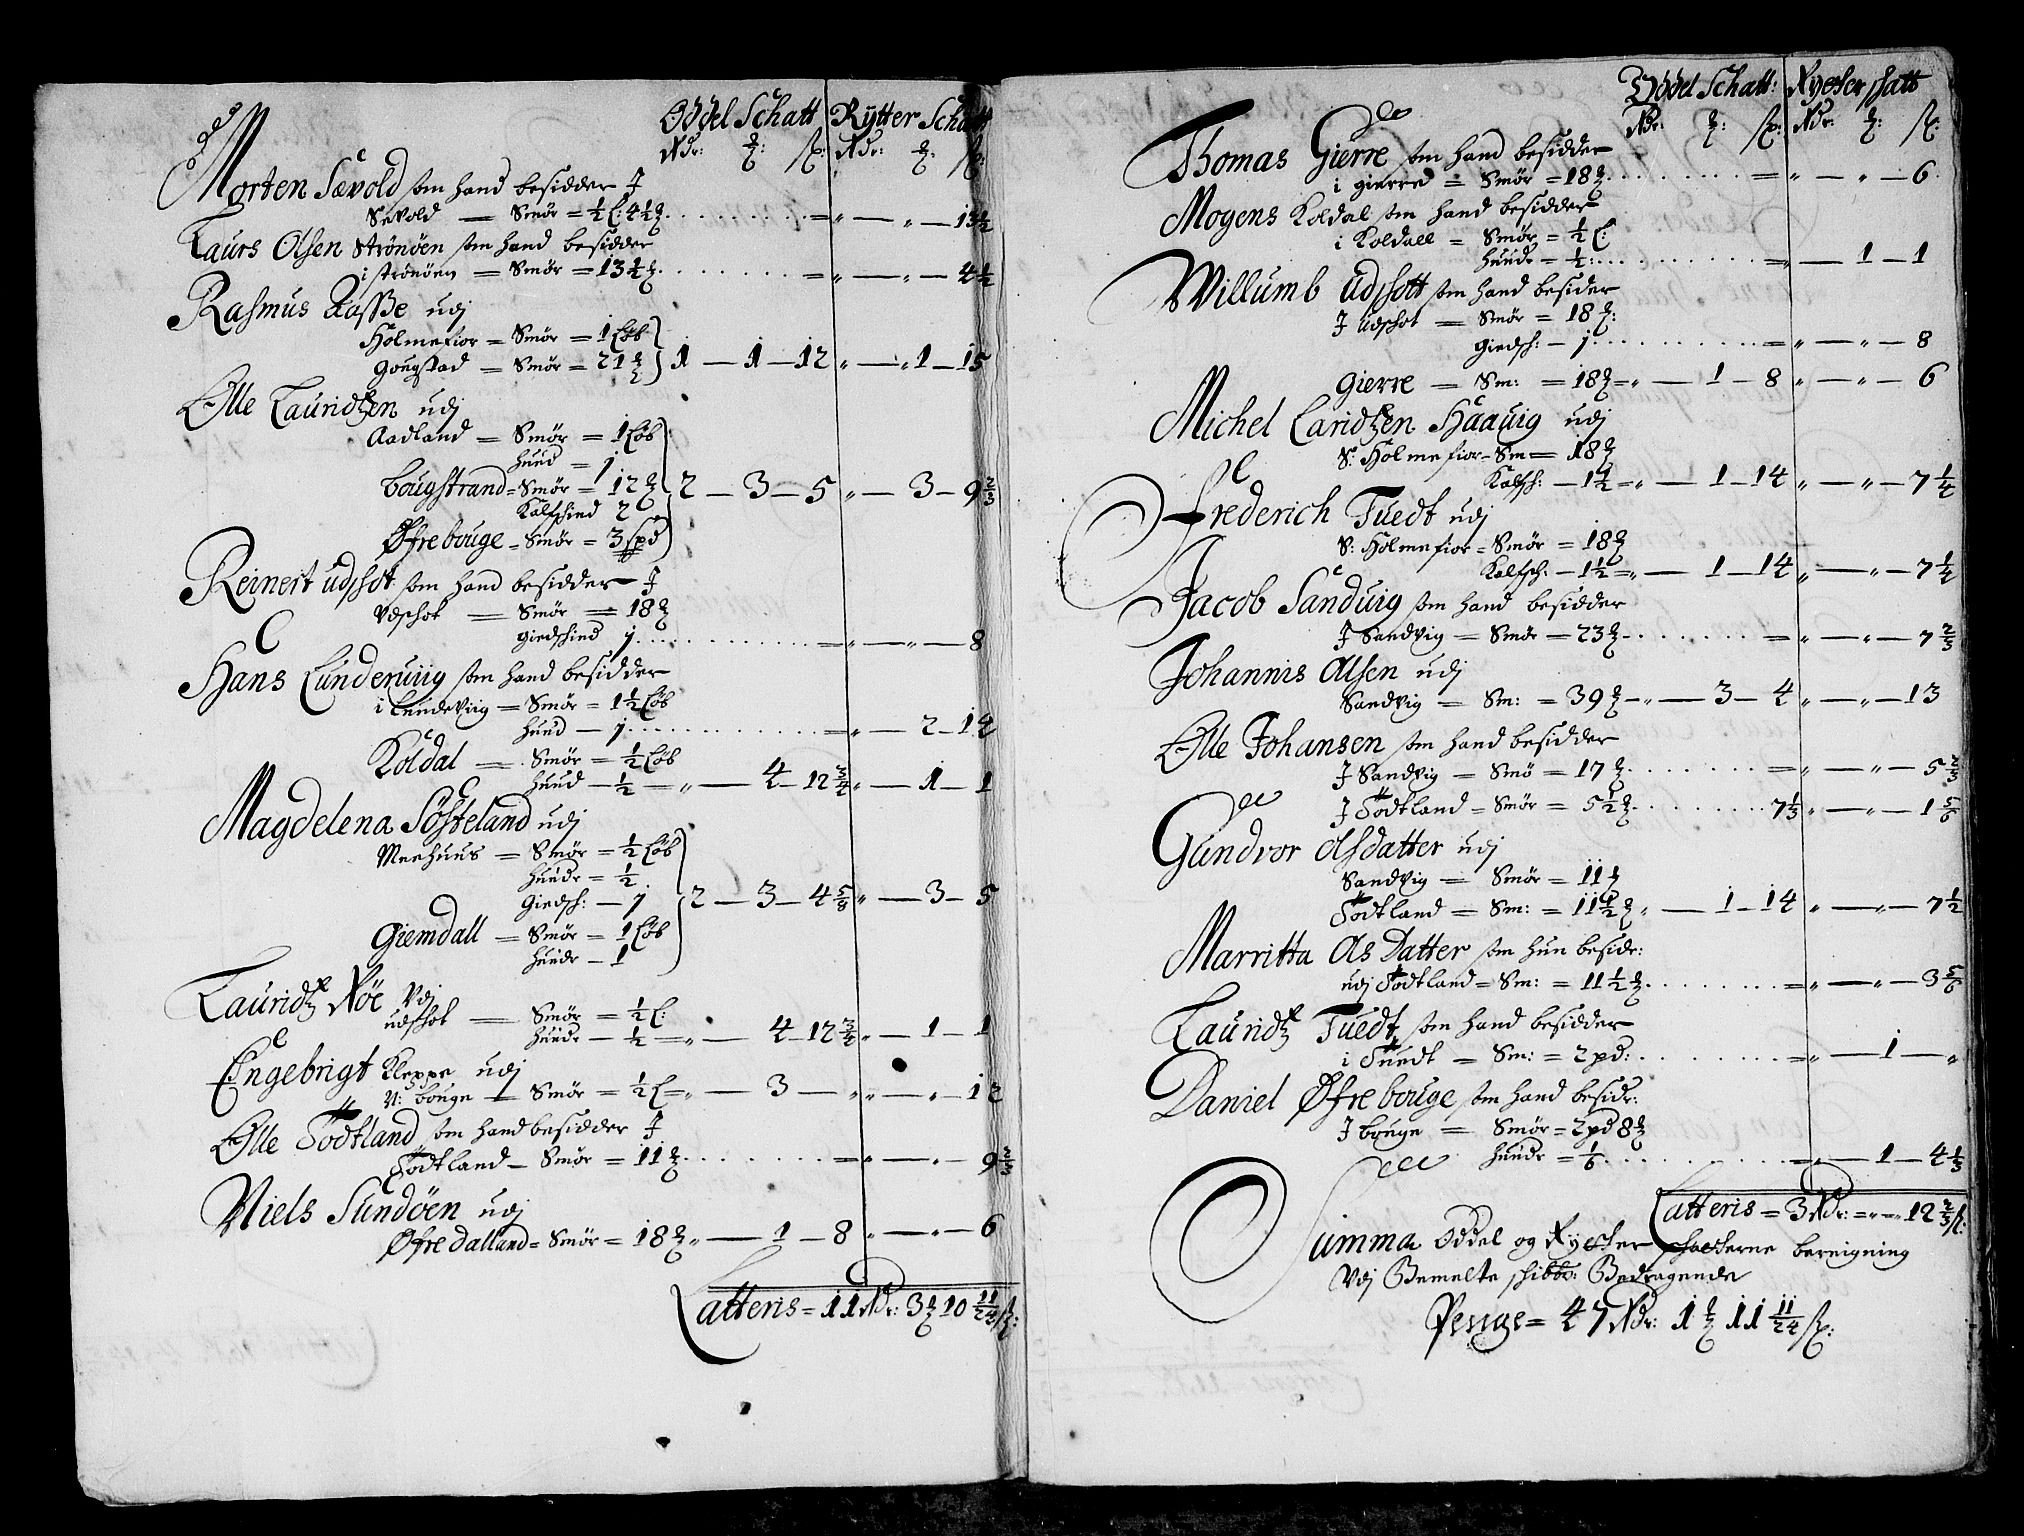 Oddel Schatt Rytter Schatt
Rdr: ȝ: sz: Rdr: ȝ: sz:
Morten Sævold som hand besidder J
Sævold — Smør = ½ L: 4½ ȝ = „ — „ — 13½
Laurs Olsen Strönöen som hand besidder
i strönöen = Smør = 13½ ȝ = „ — „ — 4½
Rasmus Rasse udj
Holmefior = Smør = 1 Løb
Gougstad = Smør = 21 ȝ 1 — 1 — 12 „ — „ 1 — 15
Olle Lauridtzen udj
Aadland = Smør = 1 Løb
huud = 1
bougstrand = Smør = 12 ȝ 2 — 3 — 5 „ — 3 — 9⅔
Kalfschind 2
Øfrebouge = Smør = 3 spd
Reinert udschot som hand besidder J
Vdschot = Smør = 18 ȝ
giedschind 1 = „ — „ — 8
Hans Lunderuiig som hand besidder
i Lundeviig = Smør = 1½ Løb
huud — 1 = „ — 2 — 14
Koldal = Smør = ½ Løb
huud — ½ = „ — 4 — 12¾ „ — 1 — 1
Magdelena Söfteland udj
Meehuus = Smør = ½ Løb
huude = ½
Giedsch: — 1 2 — 3 — 4⅝ „ — 3 — 5
Giemdall = Smør = 1 Løb
huude — 1
Lauridtz Röe Vdj
udschot = Smør = ½ L:
huude — ½ = „ — 4 — 12¾ „ — 1 — 1
Engebrigt Kleppe udj
N: bouge — Smør = ½ L = „ — 3 — „ „ — „ — 12
Olle Todtland som hand besidder J
Todtland — Smør = 11 ȝ = „ — „ — 9⅔
Niels Sundöen udj
Øfre dalland = Smør = 18 ȝ „ — 1 — 8 „ — „ — 6
Latteris = 11 Rdr: 3 ȝ 10 11/24 sz:
Oddel Schatt: Rytter schatt
Rdr: ȝ: sz: Rdr: ȝ: sz:
Thomas Gierre som hand besidder
i gierre = Smør = 18 ȝ = „ — „ — 6
Mogens Koldal som hand besidder
i Koldall = Smør = ½ L:
huude = ½ = „ — 1 — 1
Willumb Udschott som hand besider
J Udschot = Smør = 18 ȝ:
giedsch: — 1 = „ — „ — 8
Gierre = Sm: = 18 ȝ = „ — 1 — 8 „ — „ — 6
Michel Laridtzen Haauig udj
S: Holmefior = Sm = 18 ȝ
Kalfsch: — 1½ = „ — 1 — 14 „ — „ — 7¼
Frederich Tuedt udj
S: Holmefior = Smør = 18 ȝ
Kalfsch: — 1½ = „ — 1 — 14 „ — „ — 7¼
Jacob Sanduig som hand besidder
J Sandvig = Smør = 23 ȝ = „ — „ — 7⅔
Johannis Olsen udj
Sandvig = Sm: = 39 ȝ „ — 3 — 4 „ — „ — 13
Olle Johansen som hand besidder
J Sandvig = Smø = 17 ȝ = „ — „ — 5⅔
J Todtland = Smør = 5½ ȝ 7⅓ „ — „ — 1⅚
Gundvor Olsdatter udj
Sandvig = Smør = 11 ȝ
Todtland = Sm: = 11½ ȝ „ — 1 — 14 „ — „ — 7½
Marritta Ols Datter som hun beside:
udj Todtland = Sm: = 11½ ȝ = „ — „ — 3⅚
Lauridtz Tuedt som hand besidder
i Tuedt = Sm: = 2 pd: = „ — 1 — „
Daniel Øfrebouge som hand beside:
J bouge = Smør = 2 pd 8 ȝ
huude = ⅙ = „ — 1 — 4⅓
Latteris = 3 Rdr: = „ = 12⅔ sz:
Summa Oddel og Rytter schatterne bereigning
Vdj Bemelte schibb: Bedragende
Penge = 47 Rdr: 1 ȝ 11 11/24 sz: